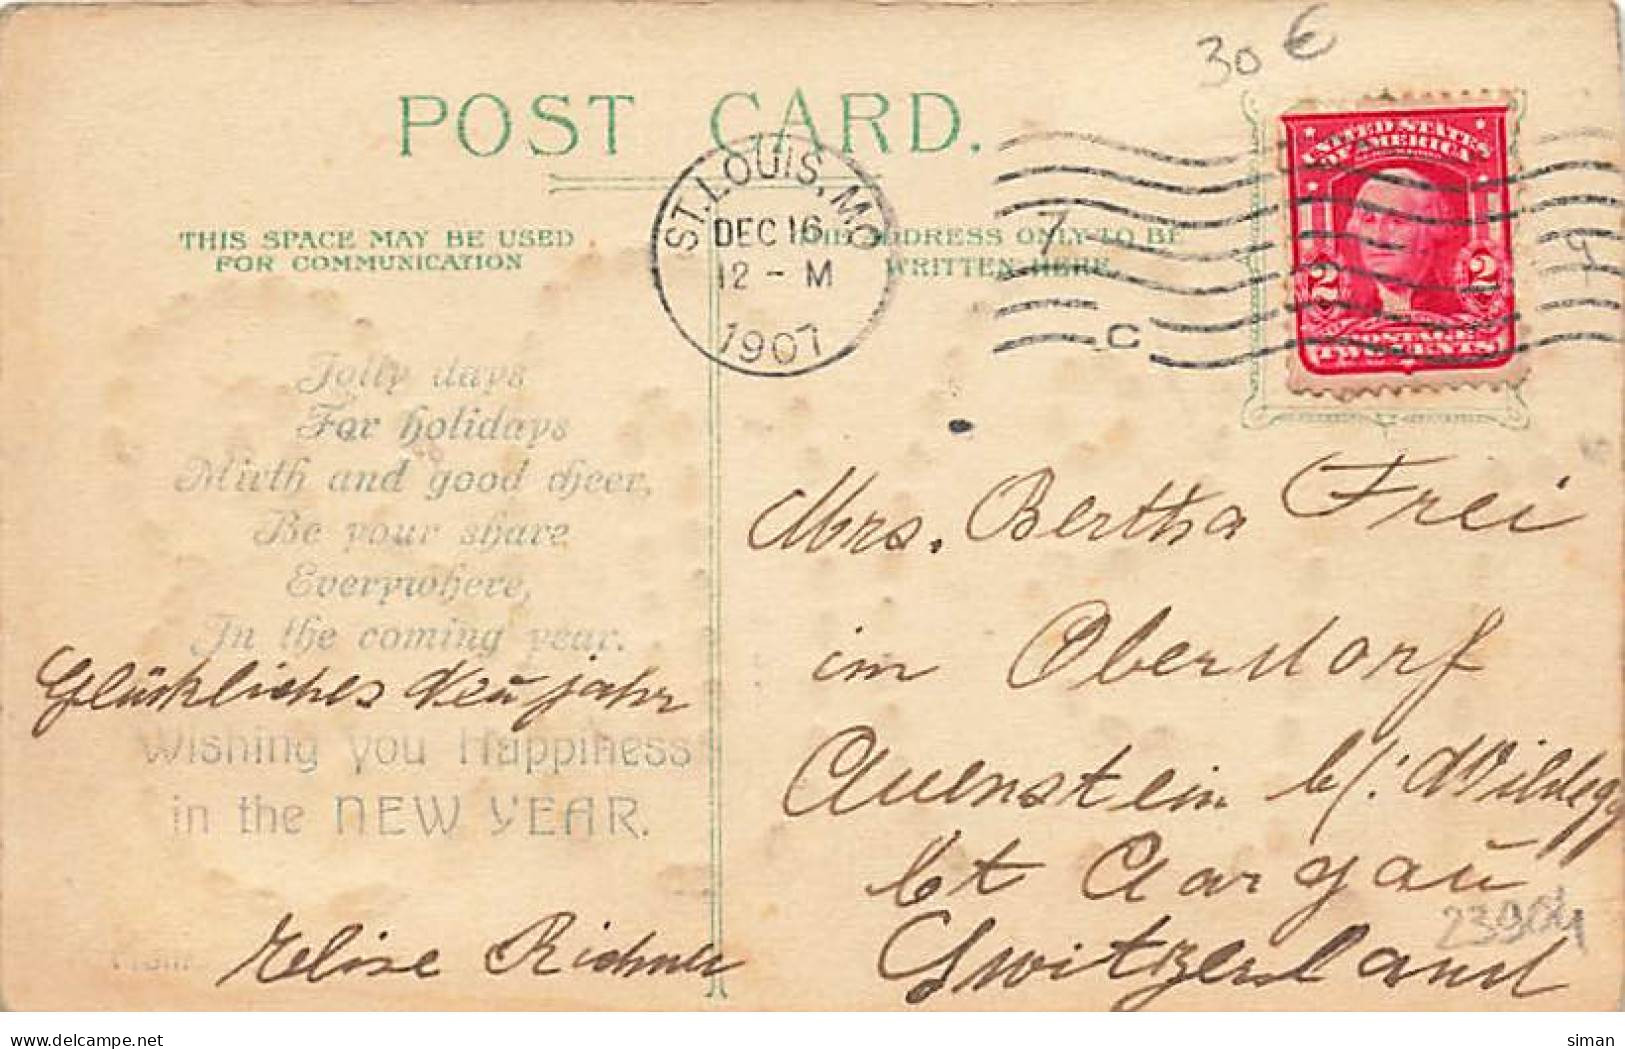 30 €
POST CARD.
UNITED STATES
OF AMERICA
2 2
POSTAGE
TWO CENTS
ST. LOUIS, MO
DEC 16
12 - M
1907
7
C
9
THIS SPACE MAY BE USED
FOR COMMUNICATION
THIS ADDRESS ONLY TO BE
WRITTEN HERE
Jolly days
For holidays
Mirth and good cheer,
Be your share
Everywhere,
In the coming year.
Glückliches Neŭjahr
Wishing you Happiness
in the NEW YEAR.
From
Elise Richner
Mrs. Bertha Frei
im Oberdorf
Auenstein b/: Wildegg
Ct Aargaŭ
Switzerland
23904
www.delcampe.net
siman